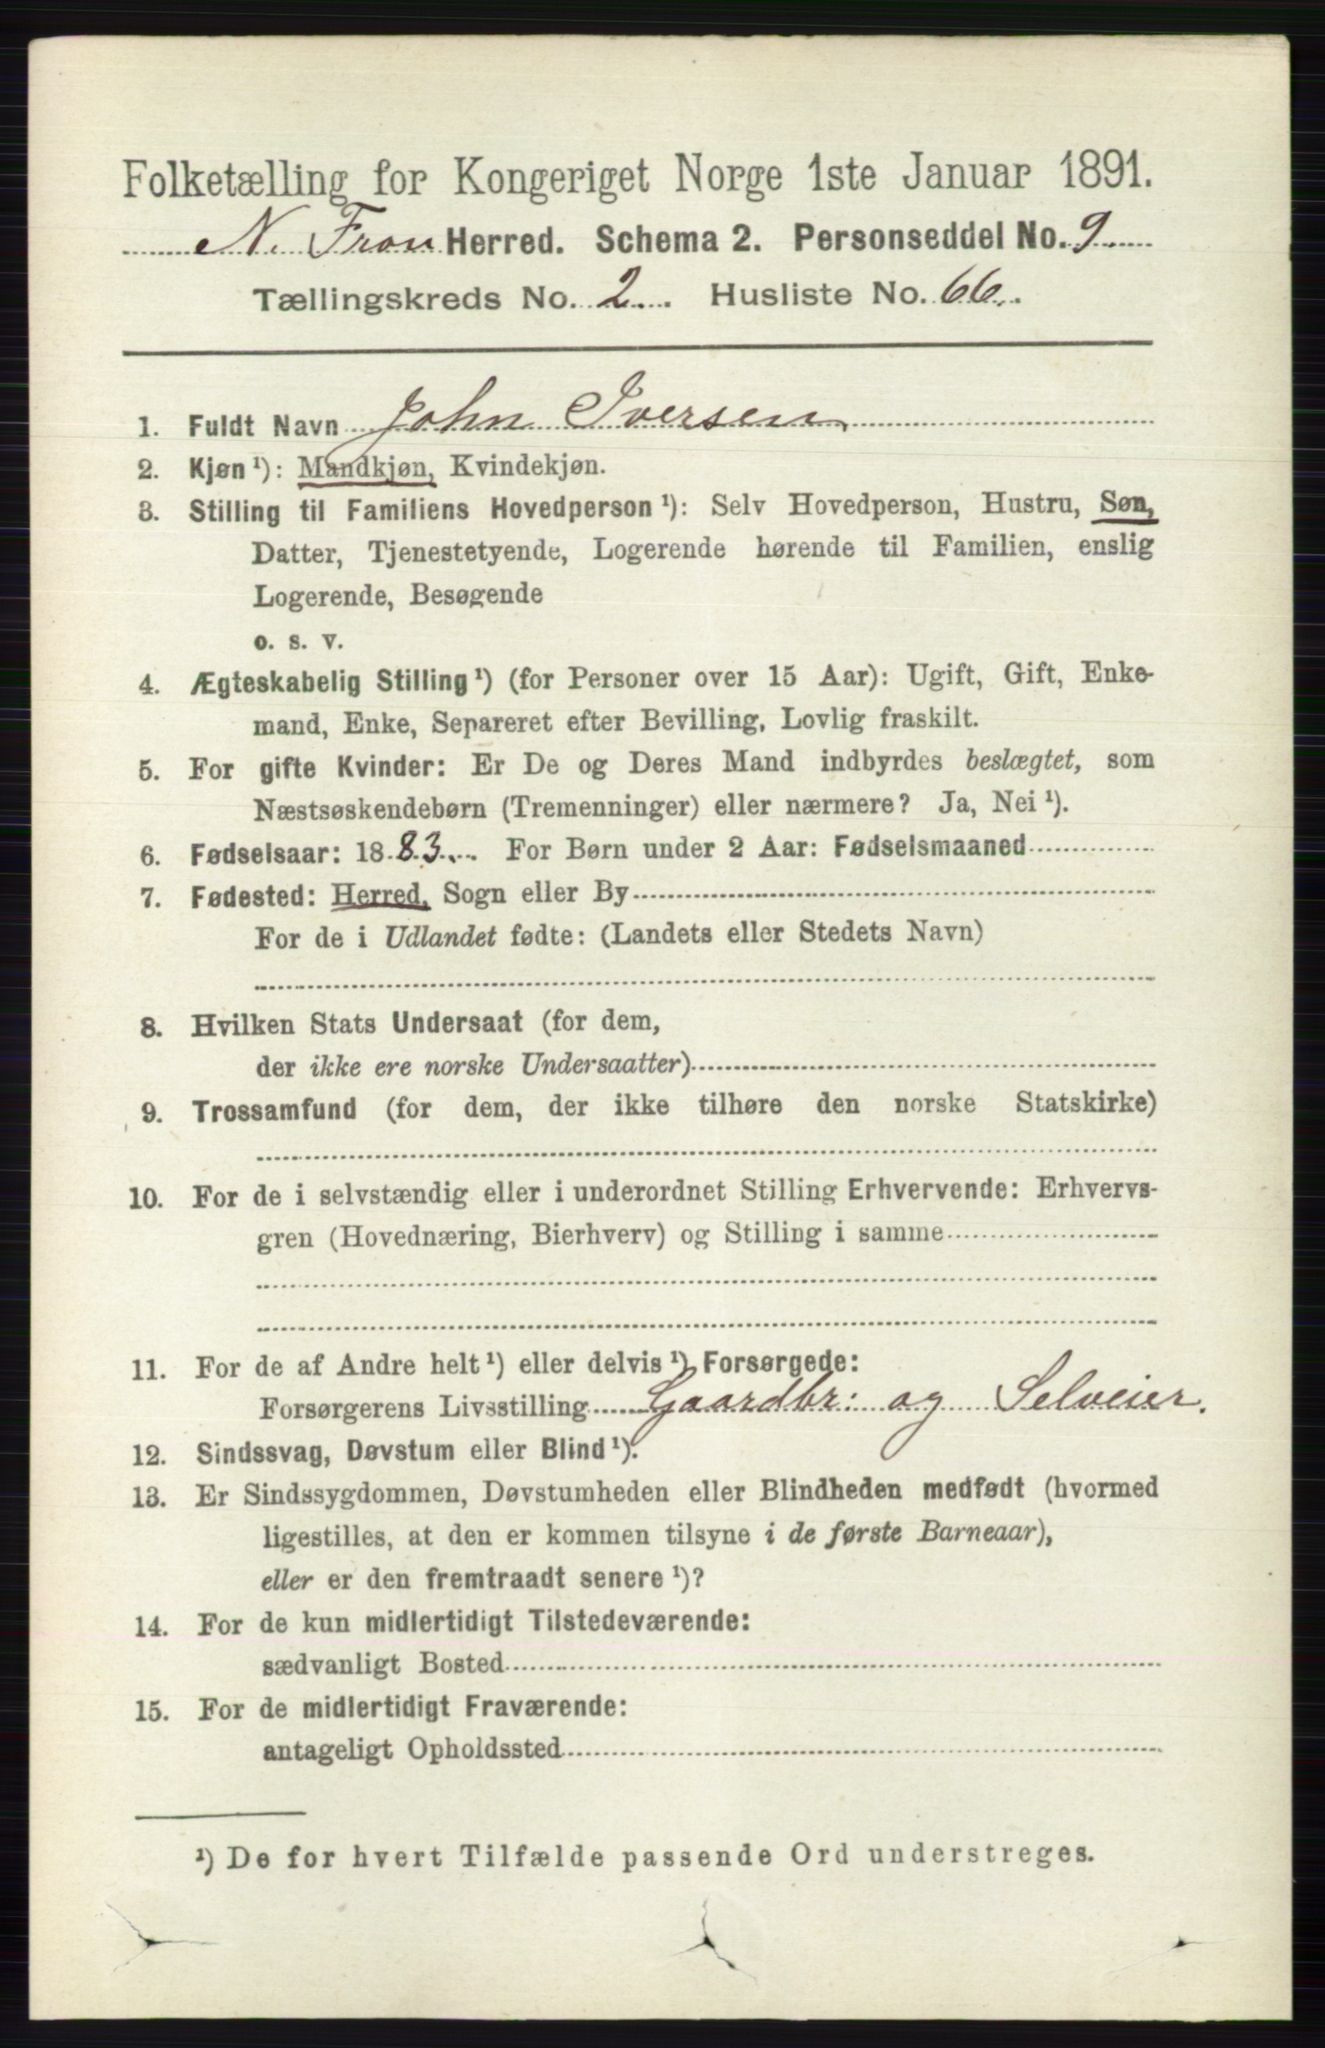 Folketælling for Kongeriget Norge 1ste Januar 1891.
N. Fron Herred. Schema 2. Personseddel No. 9.
Tællingskreds No. 2. Husliste No. 66.
1. Fuldt Navn John Iversen
2. Kjøn ¹): Mandkjøn, Kvindekjøn.
3. Stilling til Familiens Hovedperson ¹): Selv Hovedperson, Hustru, Søn,
Datter, Tjenestetyende, Logerende hørende til Familien, enslig
Logerende, Besøgende
o. s. v.
4. Ægteskabelig Stilling ¹) (for Personer over 15 Aar): Ugift, Gift, Enke-
mand, Enke, Separeret efter Bevilling, Lovlig fraskilt.
5. For gifte Kvinder: Er De og Deres Mand indbyrdes beslægtet, som
Næstsøskendebørn (Tremenninger) eller nærmere? Ja, Nei ¹).
6. Fødselsaar: 1883. For Børn under 2 Aar: Fødselsmaaned
7. Fødested: Herred, Sogn eller By
For de i Udlandet fødte: (Landets eller Stedets Navn)
8. Hvilken Stats Undersaat (for dem,
der ikke ere norske Undersaatter)
9. Trossamfund (for dem, der ikke tilhøre den norske Statskirke)
10. For de i selvstændig eller i underordnet Stilling Erhvervende: Erhvervs-
gren (Hovednæring, Bierhverv) og Stilling i samme
11. For de af Andre helt ¹) eller delvis ¹) Forsørgede:
Forsørgerens Livsstilling Gaardbr: og Selveier.
12. Sindssvag, Døvstum eller Blind ¹).
13. Er Sindssygdommen, Døvstumheden eller Blindheden medfødt (hvormed
ligestilles, at den er kommen tilsyne i de første Barneaar),
eller er den fremtraadt senere ¹)?
14. For de kun midlertidigt Tilstedeværende:
sædvanligt Bosted
15. For de midlertidigt Fraværende:
antageligt Opholdssted
¹) De for hvert Tilfælde passende Ord understreges.